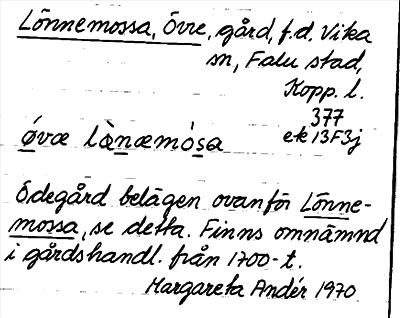 Lönnemossa, Övre, gård, f.d. Vika
sn, Falu stad,
Kopp. l.
377
ek 13F3j
øvæ lànæmòsa
Ödegård belägen ovanför Lönne-
mossa, se detta. Finns omnämnd
i gårdshandl. från 1700-t.
Margareta Andér 1970